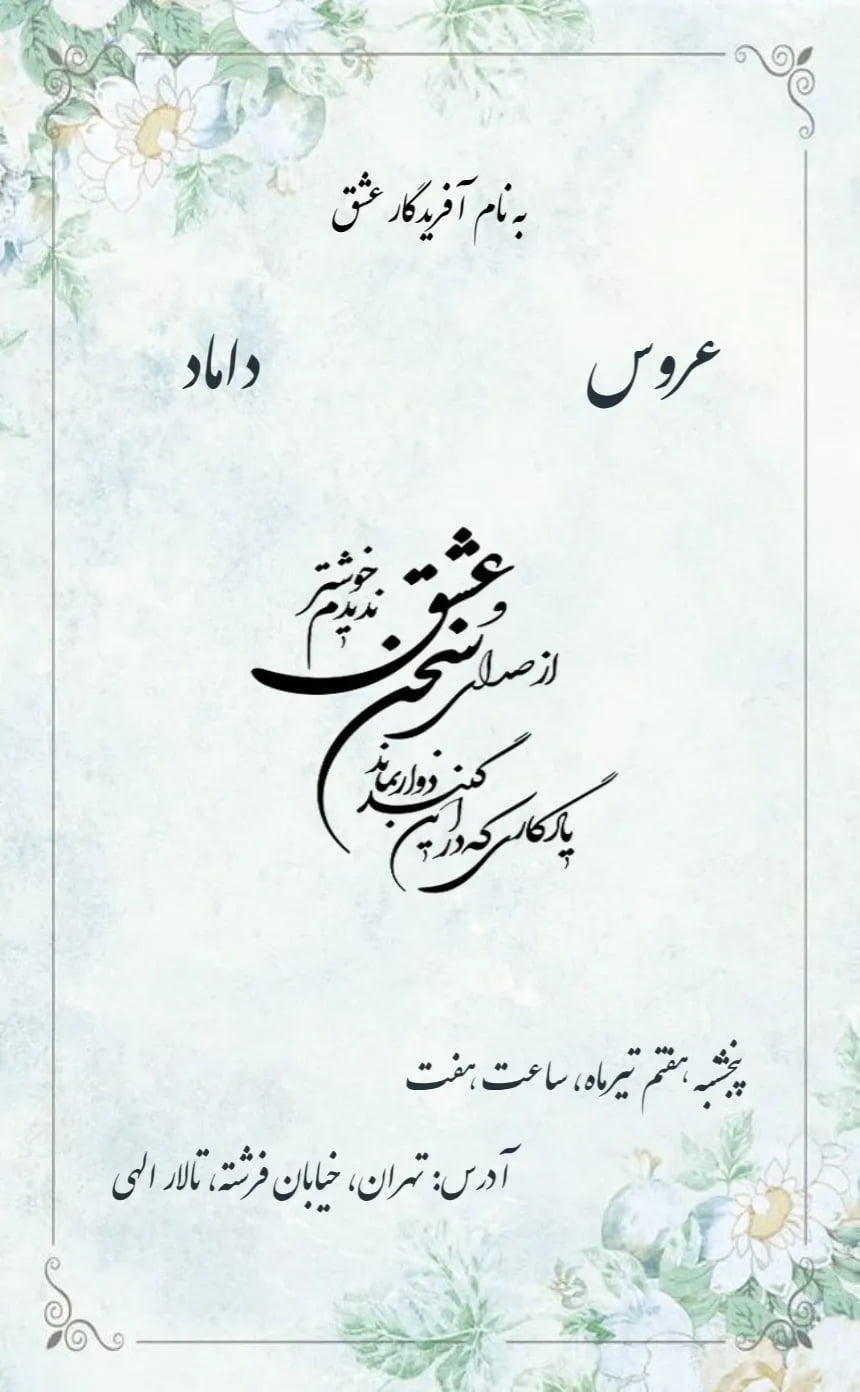 به نام آفریدگار عشق
عروس
داماد
از صدای سخن عشق ندیدم خوشتر
یادگاری که در این گنبد دوار بماند
پنجشبه هفتم تیرماه، ساعت هفت
آدرس: تهران، خیابان فرشته، تالار الهی